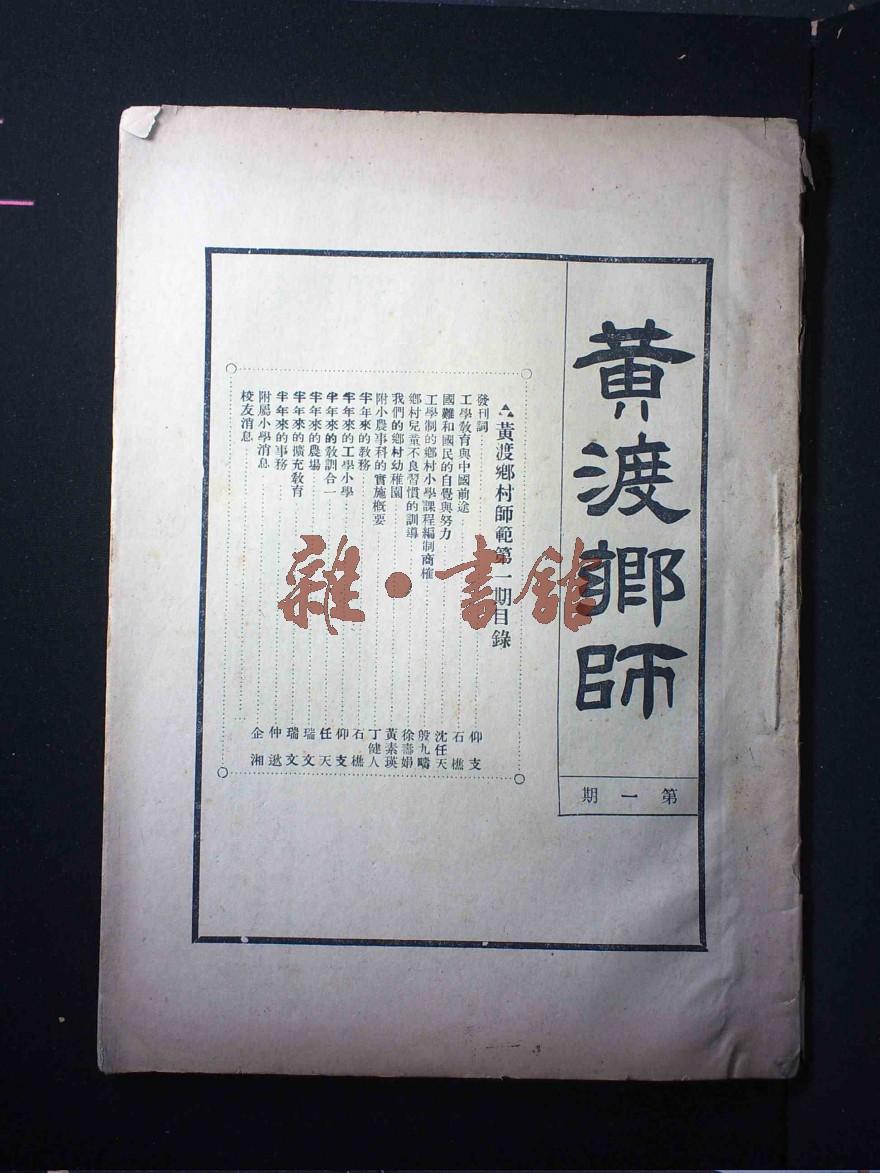 黃渡鄉師
第一期
黃渡鄉村師範第一期目錄
發刊詞……仰支
工學教育與中國前途……石樵
國難和國民的自覺與努力……沈任天
工學制的鄉村小學課程編制商榷……殷九疇
鄉村兒童不良習慣的訓導……徐壽娟
我們的鄉村幼稚園……黃素瑛
附小農事科的實施概要……丁健人
半年來的教務……石樵
半年來的工學小學……仰支
半年來的教訓合一……任天
半年來的農場……瑞文
半年來的擴充教育……瑞文
半年來的事務……仲
附屬小學消息……企湘
校友消息……
雜·書館